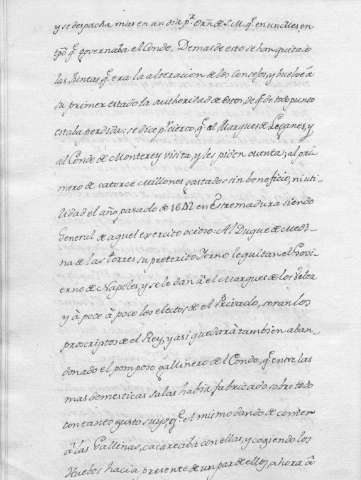 y se despacha mas en un dia pr. Orn. de S.M. qe. en un Mes en
tpo. qe. governaba el Conde, Demas de esto se han quitado
las Juntas qe. era la alteracion de los Consejos, y buelve á
su primer estado la authoridad de estos de qe. de todo punto
estaba perdida; se dice pr. cierto, qe. el Marques de Leganes, y
al Conde de Monterey visita, y les piden cuenta; al pri-
mero de catorce Millones gastados sin beneficio, ni uti-
lidad el año pasado de 1642 en Estremadura siendo
General de aquel exercito ocioso. Al Duque de Medi-
na de las Torres, su preterito Yerno le quitan el Govi-
erno de Napoles, y se le dan á el Marques de los Velez
y á poco á poco los electos de el Privado, seran los
proscriptos de el Rey, y asi quedará tambien aban-
donado el pomposo gallinero de el Conde, qe. entre las
mas domesticas salas habia fabricado sobre todo
con tanto gusto suyo, qe. el mismo dando de comer
á las Gallinas, cacareaba con ellas, y cogiendo los
Huebos hacia presente de un par de ellos, ahora á